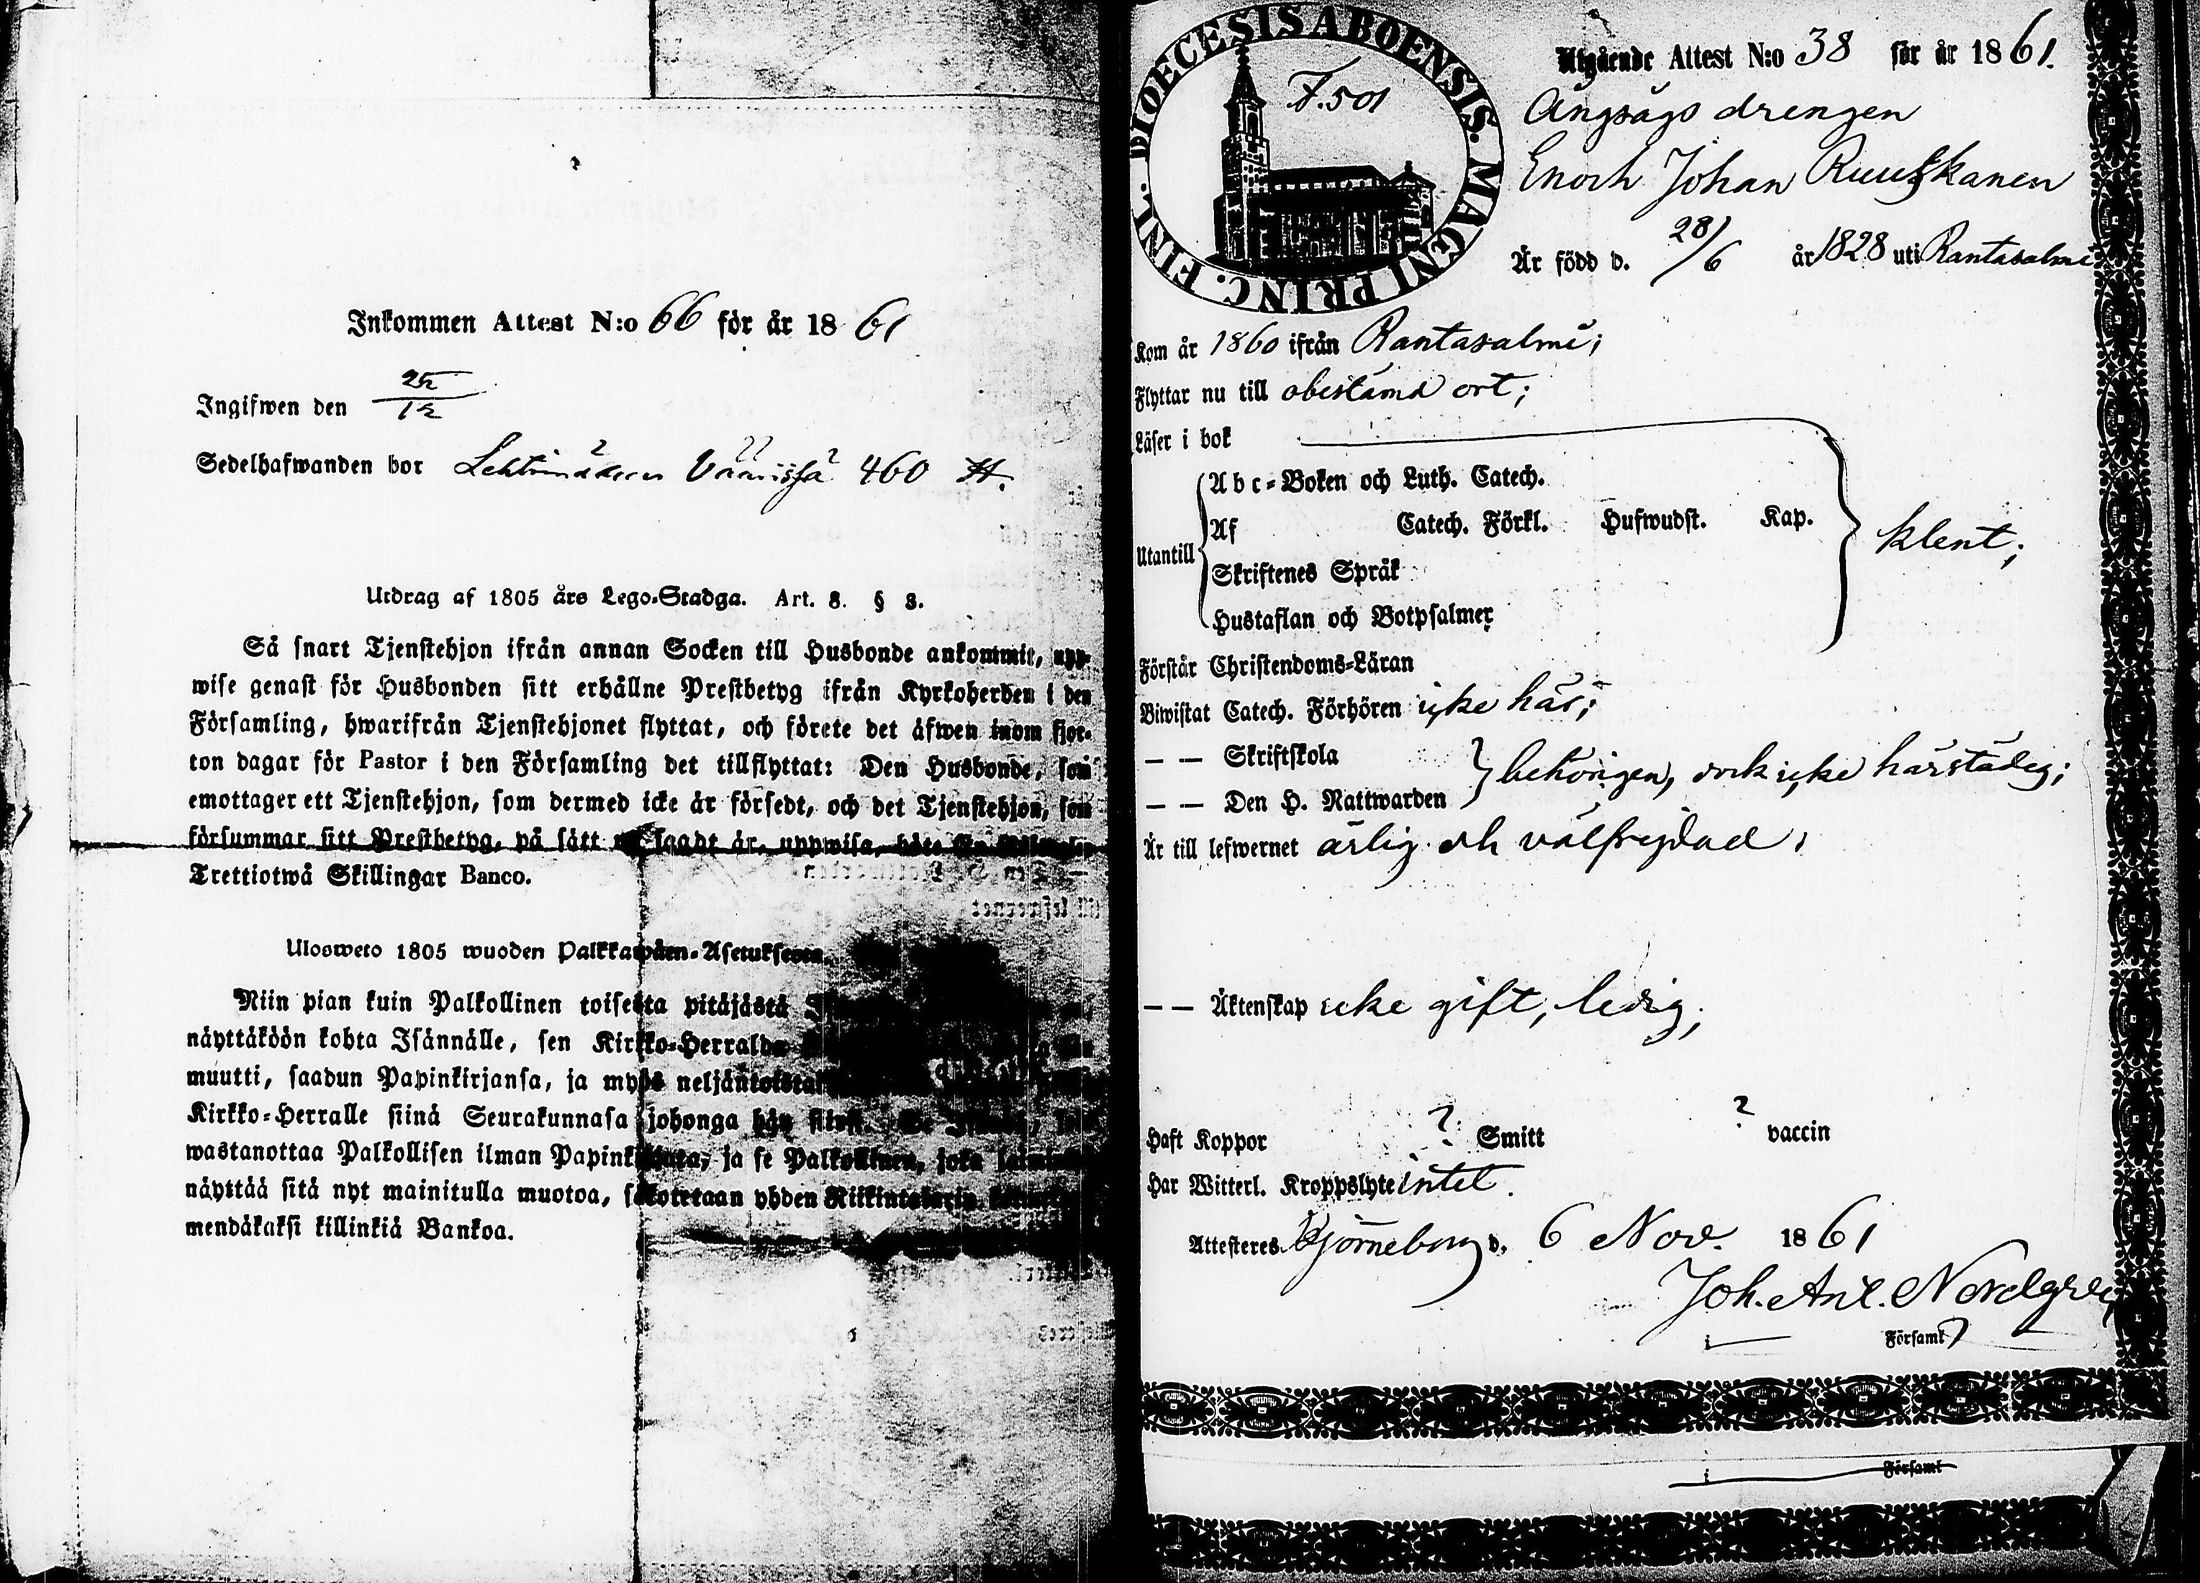 Inkommen Attest N:o 66 för år 1861
Ingifwen den 25/12
Sedelhafwanden bor 460
Utdrag af 1805 års Lego-Stadga. Art. 8. § 3.
Så snart Tjenstehjon ifrån annan Socken till Husbonde ankommit, upp-
wise genast för Husbonden sitt erhållne Prestbetyg ifrån Kyrkoherden i den
Församling, hwarifrån Tjenstehjonet flyttat, och förete det äfwen inom fjor-
ton dagar för Pastor i den Församling det tillflyttat: Den Husbonde, som
emottager ett Tjenstehjon, som dermed icke är försedt, och det Tjenstehjon, som
försummar sitt Prestbetyg, på sätt sagdt är, uppwisa, böte
Trettiotwå Skillingar Banco.
Ulosweto 1805 wuoden Palkkawäen-Asetuksesta.
Niin pian kuin Palkollinen toisesta pitäjästä
näyttäköön kohta Isännälle, sen Kirkko-Herralda
muutti, saadun Papinkirjansa, ja myös neljäntoista
Kirkko-Herralle siinä Seurakunnasa johonga hän
wastanottaa Palkollisen ilman Papinkirjata, ja se Palkollinen, joka
näyttää sitä nyt mainitulla muotoa, sakotetaan yhden Riikintalerin
mendäkaksi killinkiä Bankoa.
FINL. DIOECESIS ABOENSIS. MAGNI PRINC.
F. 501
Utgående Attest N:o 38 för år 1861.
Ångsågs drengen
Enoch Johan Ruuskanen
Är född d. 28/6 år 1828 uti Rantasalmi
Kom år 1860 ifrån Rantasalmi;
Flyttar nu till obestämd ort;
Läser i bok
Abc-Boken och Luth. Catech.
Af Catech. Förkl. Hufwudst. Kap.
Utantill
klent;
Skriftenes Språk
Hustaflan och Botpsalmer
Förstår Christendoms-Läran
Biwistat Catech. Förhören icke här;
— — Skriftskola
behörigen, dock icke härstädes;
— — Den H. Nattwarden
Är till lefwernet ärlig och välfrejdad;
— — Äktenskap icke gift, ledig;
Haft Koppor ? Smitt ? vaccin
Har Witterl. Kroppslyte intet.
Attesteres Björneborg d. 6 Nov. 1861
Joh. Axl. Nordgren
i Församl
i Församl